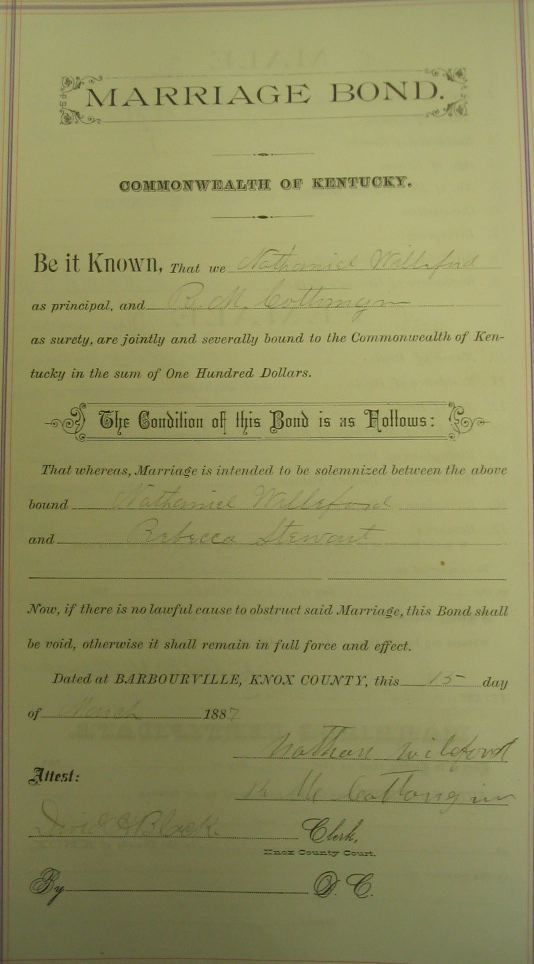 MARRIAGE BOND.
COMMONWEALTH OF KENTUCKY.
Be it Known, That we Nathaniel Willeford
as principal, and B. M. Cottongin
as surety, are jointly and severally bound to the Commonwealth of Ken-
tucky in the sum of One Hundred Dollars.
The Condition of this Bond is as Follows:
That whereas, Marriage is intended to be solemnized between the above
bound Nathaniel Willeford
and Rebecca Stewart
Now, if there is no lawful cause to obstruct said Marriage, this Bond shall
be void, otherwise it shall remain in full force and effect.
Dated at BARBOURVILLE, KNOX COUNTY, this 15 day
of March 1887
Nathan Wileford
Attest:
M Cottongin
Black. Clerk,
Knox County Court.
By D. C.